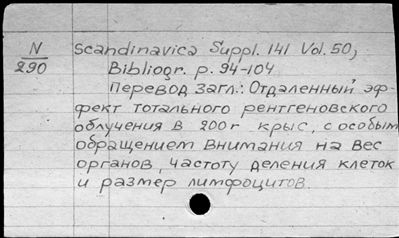 N Scandinavica Suppl. 141 Vol. 50,
290 Bibliogr. p. 94-104
Перевод загл.: Отдаленный эф-
фект тотального рентгеновского
облучения в 200 г крыс, с особым
обращением внимания на вес
органов, частоту деления клеток
и размер лимфоцитов.